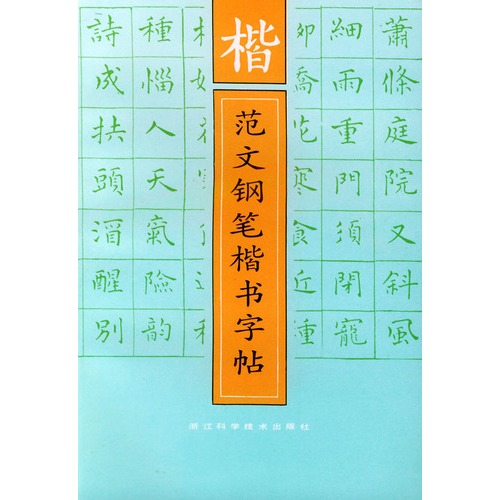 楷
范文钢笔楷书字帖
蕭條庭院又斜風
細雨重門須閉寵
寒食近種
種惱人天氣險韻
詩成扶頭酒醒別
浙江科学技术出版社